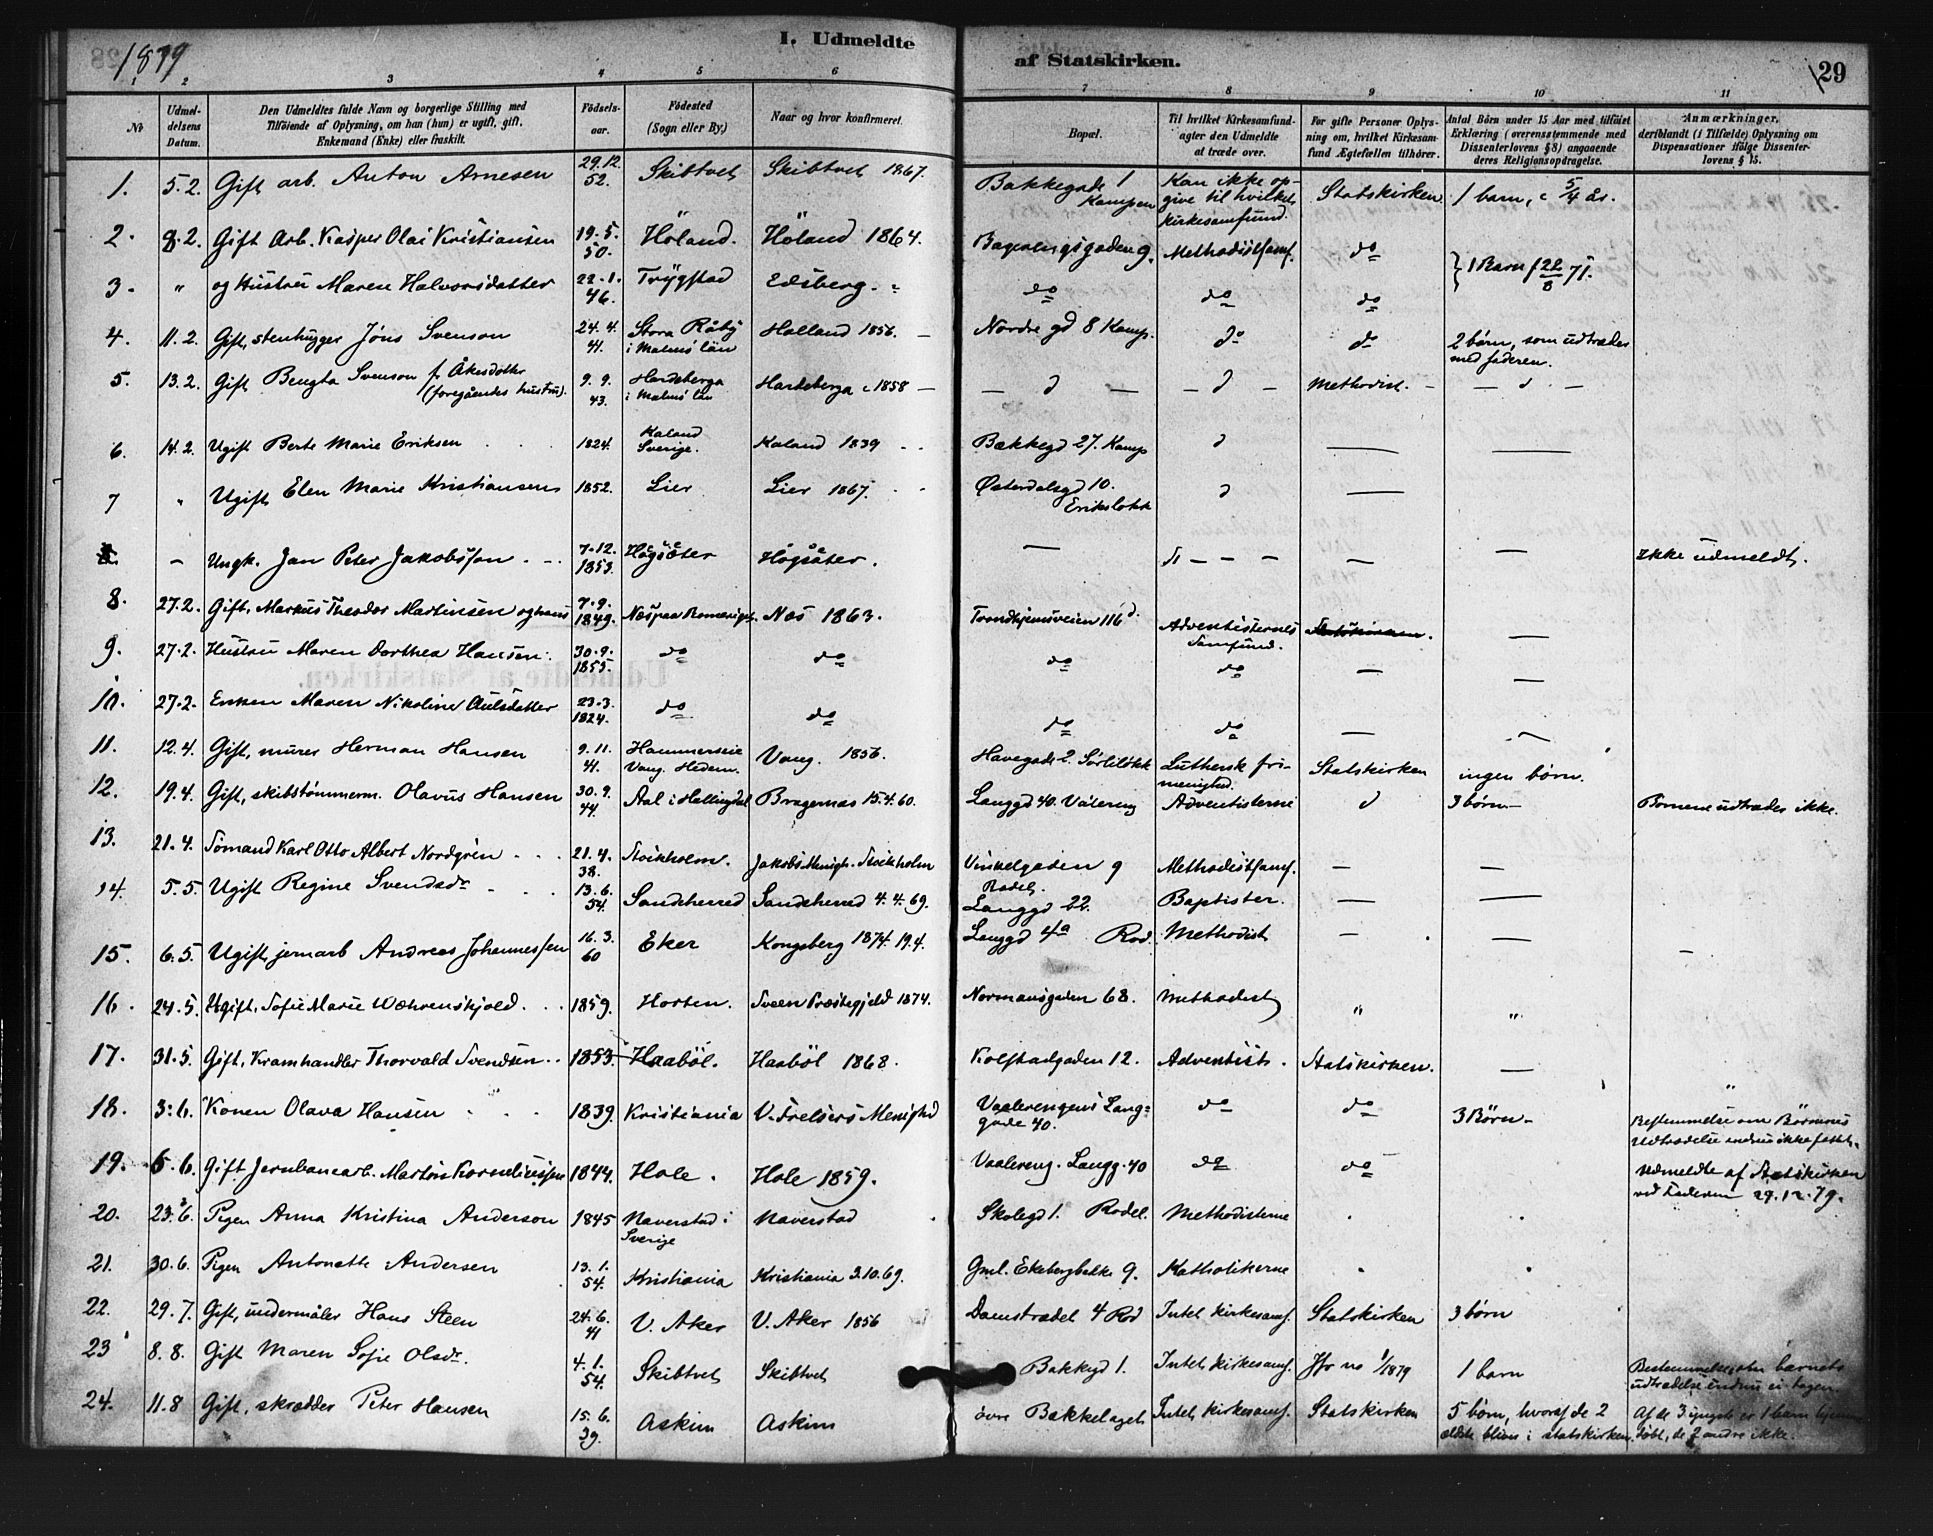 1879
I. Udmeldte af Statskirken. 29
1 2 3 4 5 6 7 8 9 10 11
No
Udmeldelsens Datum.
Den Udmeldtes fulde Navn og borgerlige Stilling med
Tilføiende af Oplysning, om han (hun) er ugift, gift,
Enkemand (Enke) eller fraskilt.
Fødselsaar.
Fødested
(Sogn eller By.)
Naar og hvor konfirmeret.
Bopæl.
Til hvilket Kirkesamfund
agter den Udmeldte
at træde over.
For gifte Personer Oplys-
ning om, hvilket Kirkesam-
fund Ægtefællen tilhører.
Antal Börn under 15 Aar med tilføiet
Erklæring (overensstemmende med
Dissenterlovens § 8) angaaende
deres Religionsopdragelse.
Anmærkninger,
deriblandt (i Tilfælde) Oplysning om
Dispensationer ifølge Dissenter-
lovens § 15.
1. 5.2. Gift arb. Anton Arnesen 29.12. 52. Skibtvet Skibtvet 1867. Bakkegade 1 Kampen Kan ikke opgive til hvilket kirkesamfund. Statskirken 1 barn, c 5/4 år.
2. 8.2. Gift Arb. Kasper Olai Kristiansen 19.5. 50. Höland. Höland 1864. 9. Methodistsamf. do } 1 Barn f 22/8 71.
3. " og Hustru Maren Halvorsdatter 22.1. 46. Trygstad Edsberg. " do do do
4. 11.2. Gift, stenhugger Jöns Svenson 24.4. 41. Stora Råby i Malmö län Holland 1856. — Nordre gd 8 Kamp. do do 2 börn, som udtrædes med faderen.
5. 13.2. Gift Bengta Svenson f. Åkesdotter (foregåendes hustru). 9.9. 43. Hardeberga i Malmö län Hardeberga c 1858 — — d — — d — Methodist. — — d —
6. 14.2. Ugift Berte Marie Eriksen 1824. Kaland Sverige. Kaland 1839 Bækkegd 27. Kamp d — —
7 " Ugift Elen Marie Kristiansen 1852. Lier Lier 1867. Østerdalsgd 10. d —
— Ungk. Jan Peter Jakobsson 7.12. 1853. Högsäter Högsäter. — — — — — Ikke udmeldt.
8. 27.2. Gift, Markus Theodor Martinsen og hans 7.9. 1849. Næs paa Romerige. Næs 1863. Trondhjemsveien 116 d. Adventisternes Samfund. Statskirken. —
9. 27.2. Hustru Maren Dorthea Hansen. 30.9. 1855. do do do do — —
10. 27.2. Enken Maren Nikoline 23.3. 1824. do do do do — —
11. 12.4. Gift, murer Herman Hansen 9.11. 41. Vang. Hedem. Vang. 1856. Havegade 2. Luthersk frimenighed. Statskirken ingen börn.
12. 19.4. Gift, skibstömmerm. Olavus Hansen 30.9. 44. Aal i Hallingdal Bragernæs 15.4.60. Langgd 40. Vålereng Adventisterne d 3 börn — Börnene udtræder ikke.
13. 21.4. Sömand Karl Otto Albert Nordgrén 21.4. 38. Stockholm. Jakobs Menigh. Stockholm Vinkelgaden 9 Rodel. Methodistsamf. — —
14. 5.5. Ugift Regine Svendsdr 13.6. 54. Sandeherred Sandeherred 4.4.69. Langgd 22. Baptister. — —
15. 6.5. Ugift, jernarb Andreas Johannessen 16.3. 60 Eker Kongsberg 1874. 19.4. Langgd 4a Rod. Methodist — — —
16. 24.5. Ugift. Sofie Marie Wæhrenskjold. 1859. Horten. Sveen Præstegjeld 1874. Normansgaden 68. Methodist " "
17. 31.5. Gift, Kramhandler Thorvald Svendsen 1853 Haaböl. Haaböl 1868. Kolstadgaden 12. Adventist. Statskirken. — "
18. 3.6. Konen Olava Hansen 1839. Kristiania V. Frelsers Menighed Vaalerengens Langgade 40. do do 3 Börn — Bestemmelse om Börnenes Udtrædelse endnu ikke fattet.
19. 5.6. Gift Jernbanearb. Martin Korneliussen 1844. Hole. Hole 1859. Vaalereng. Langg. 40 do do Udmeldte af Statskirken ved Faderen 29.12.79.
20. 23.6. Pigen Anna Kristina Anderson 1845 Naverstad i Sverige Naverstad Skolegd 1. Rodel. Methodisterne
21. 30.6. Pigen Antonette Andersen 13.1. 54. Kristiania Kristiania 3.10.69. Gml. Ekebergbakke 9. Katholikerne
22. 29.7. Gift, undermåler Hans Steen 24.6. 41 V. Aker V. Aker 1856 Damstrædet 4 Rod Intet kirkesamf. Statskirken 3 börn
23 8.8. Gift Maren Sofie Olsdr. 4.1. 54. Skibtvet Skibtvet Bakkegd 1. Intet kirkesamf. Jfr no 1/1879 1 barn Bestemmelse om barnets udtrædelse endnu ei tagen
24. 11.8 Gift, skrædder Peter Hansen 15.6. 39. Askim Askim övre Bækkelaget Intet kirkesamf. Statskirken 5 börn, hvoraf de 2 ældste bliver i statskirken. Af de 3 yngste er 1 barn döbt, de 2 andre ikke.